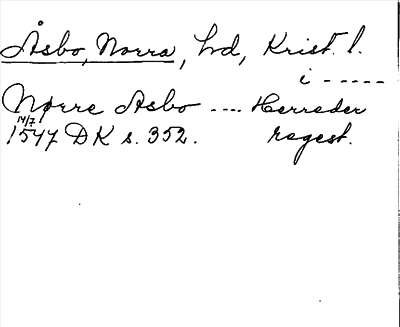 Åsbo, Norra, hd, Krist. l.
i -----
Nørre Asbo .... Herreder
14/7
1547 DK s. 352. regest.